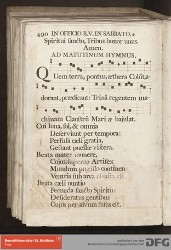 490 IN OFFICIO B.V. IN SABBATO.
Spiritui sancto, Tribus honor unus.
Amen.
AD MATUTINUM HYMNUS.
QUem terra, pontus, æthera Colunt a-
dorant, prædicant: Trinā regentem ma-
chinam Claustrū Mariæ bajulat.
Cui luna, sol, & omnia
Deserviunt per tempora:
Perfusa cæli gratia,
Gestant puellæ viscera.
Beata mater munere,
Cujus supernus Artifex
Mundum pugillo continens
Ventris sub arca clausus est.
Beata cæli nuntio
Fecunda sancto Spiritu:
Desideratus gentibus
Cujus per alvum fusus est.
DFG